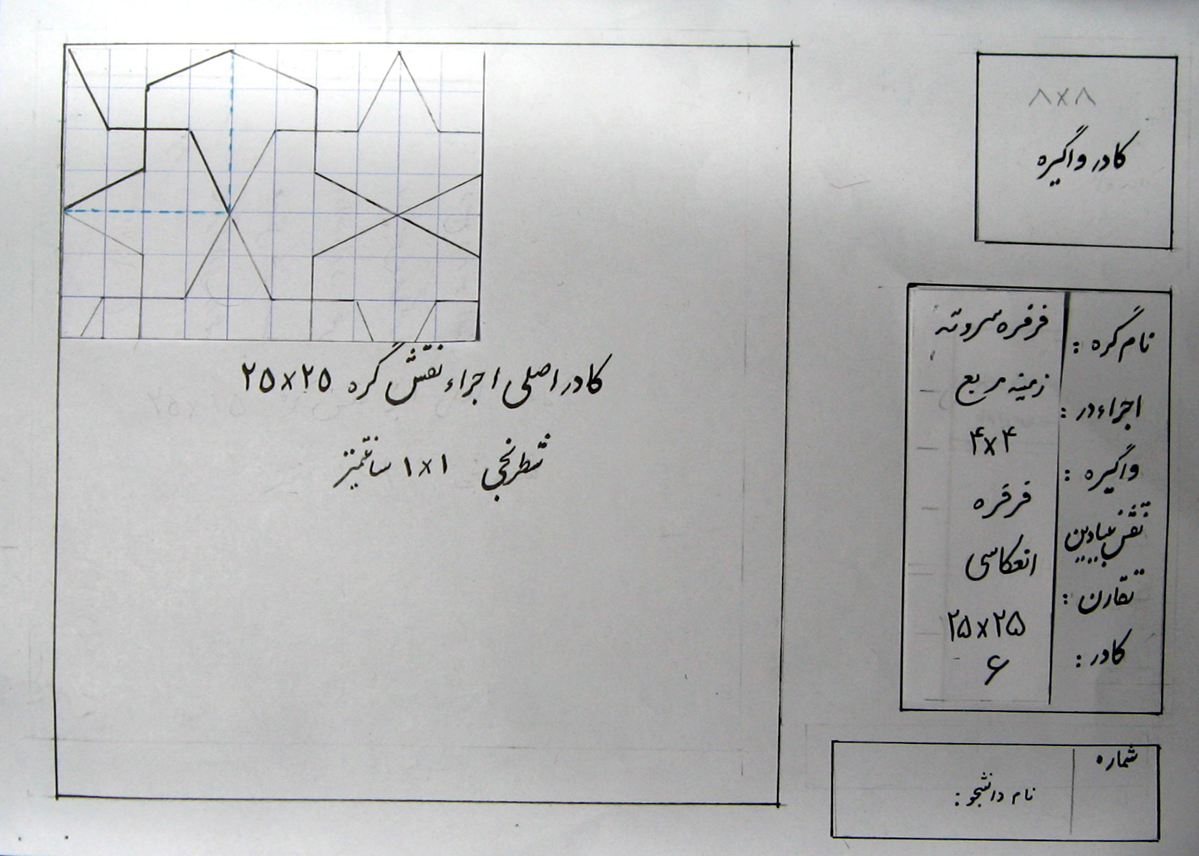 ۸×۸
کادر واگیره
نام گره : فرفره سروته
اجراء در : زمینه مربع
واگیره : ۴×۴
نقش میادین فرفره
تقارن : انعکاسی
کادر : ۲۵×۲۵
۶
کادر اصلی اجراء نقش گره ۲۵×۲۵
شطرنجی ۱×۱ سانتیمتر
شماره
نام دانشجو :